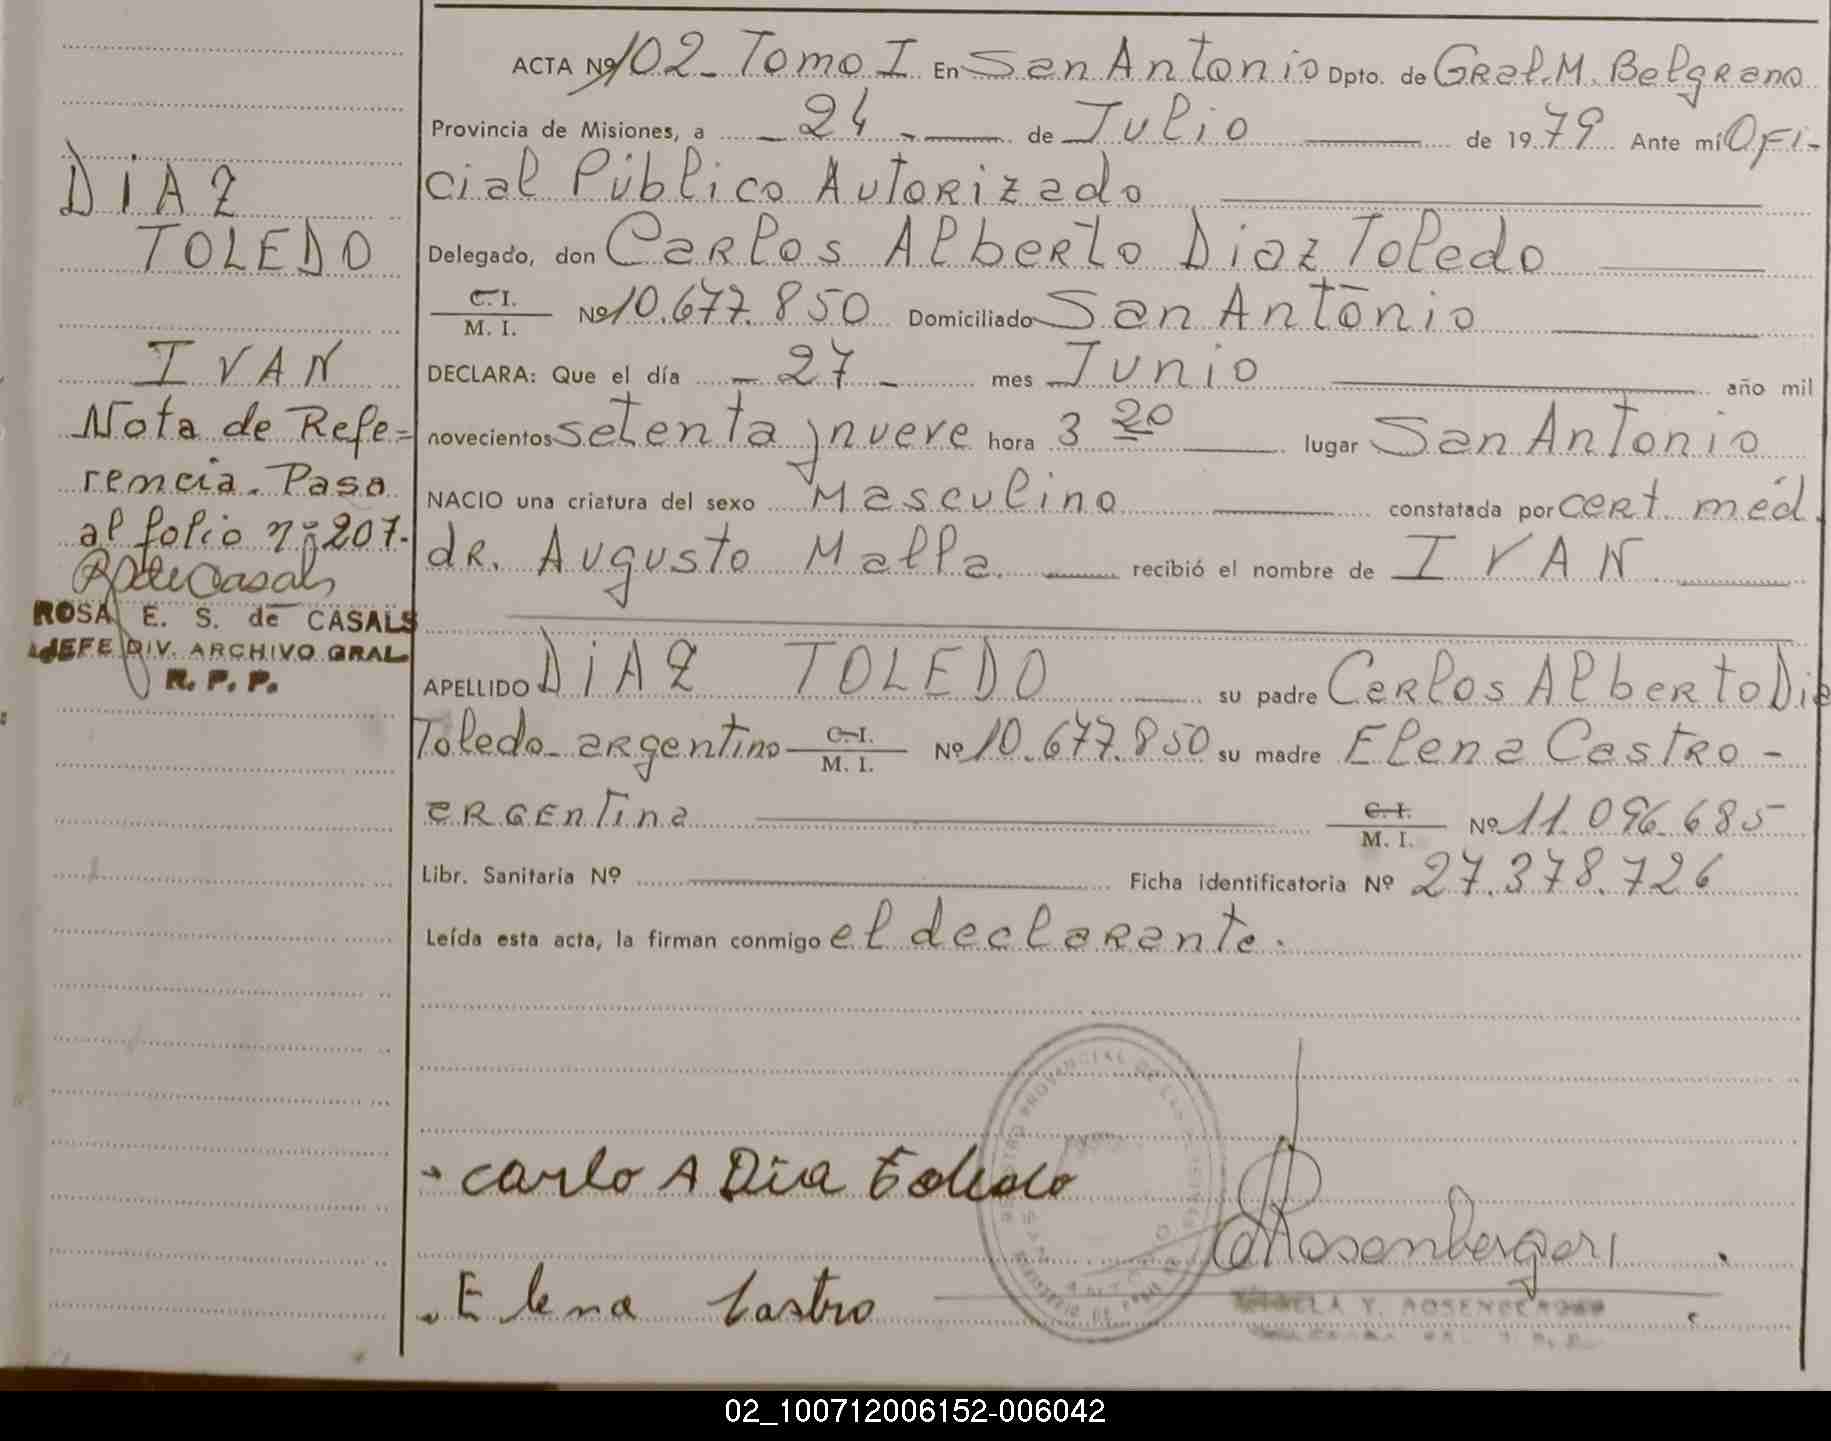 DIAZ
TOLEDO
IVAN
Nota de Refe=
rencia. Pasa
al folio nº 207.
ROSA E. S. de CASALS
JEFE DIV. ARCHIVO GRAL.
R. P. P.
ACTA Nº 102 - Tomo I En San Antonio Dpto. de Gral. M. Belgrano
Provincia de Misiones, a - 24 - de Julio de 1979 Ante mi Ofi-
cial Público Autorizado
Delegado, don Carlos Alberto Diaz Toledo
C. I.
M. I. Nº 10.677.850 Domiciliado San Antonio
DECLARA: Que el día - 27 - mes Junio año mil
novecientos setenta y nueve hora 3 20 lugar San Antonio
NACIO una criatura del sexo Masculino constatada por cert. méd.
dr. Augusto Malla. recibió el nombre de IVAN
APELLIDO DIAZ TOLEDO su padre Carlos Alberto Dia
Toledo - argentino C. I.
M. I. Nº 10.677.850 su madre Elena Castro -
argentina C. I.
M. I. Nº 11.096.685
Libr. Sanitaria Nº Ficha identificatoria Nº 27.378.726
Leída esta acta, la firman conmigo el declarante.
REGISTRO PROVINCIAL DE LAS PERSONAS
Carlo A Dia Toledo
Rosenberger
Elena Castro
Y. ROSENBERGER
02_100712006152-006042